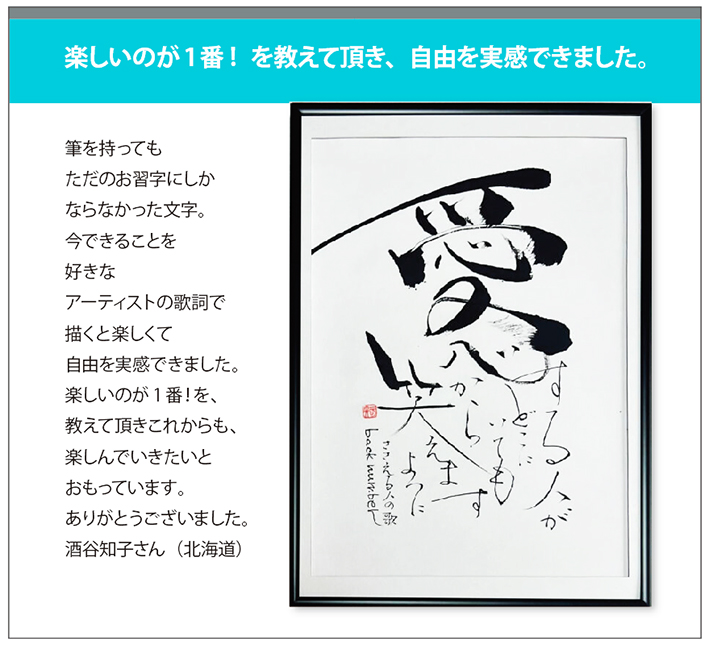 楽しいのが1番！を教えて頂き、自由を実感できました。
筆を持っても
ただのお習字にしか
ならなかった文字。
今できることを
好きな
アーティストの歌詞で
描くと楽しくて
自由を実感できました。
楽しいのが1番！を、
教えて頂きこれからも、
楽しんでいきたいと
おもっています。
ありがとうございました。
酒谷知子さん（北海道）
愛する人が
どこに
いても
心から
笑えます
ように
ささえる人の歌
back number